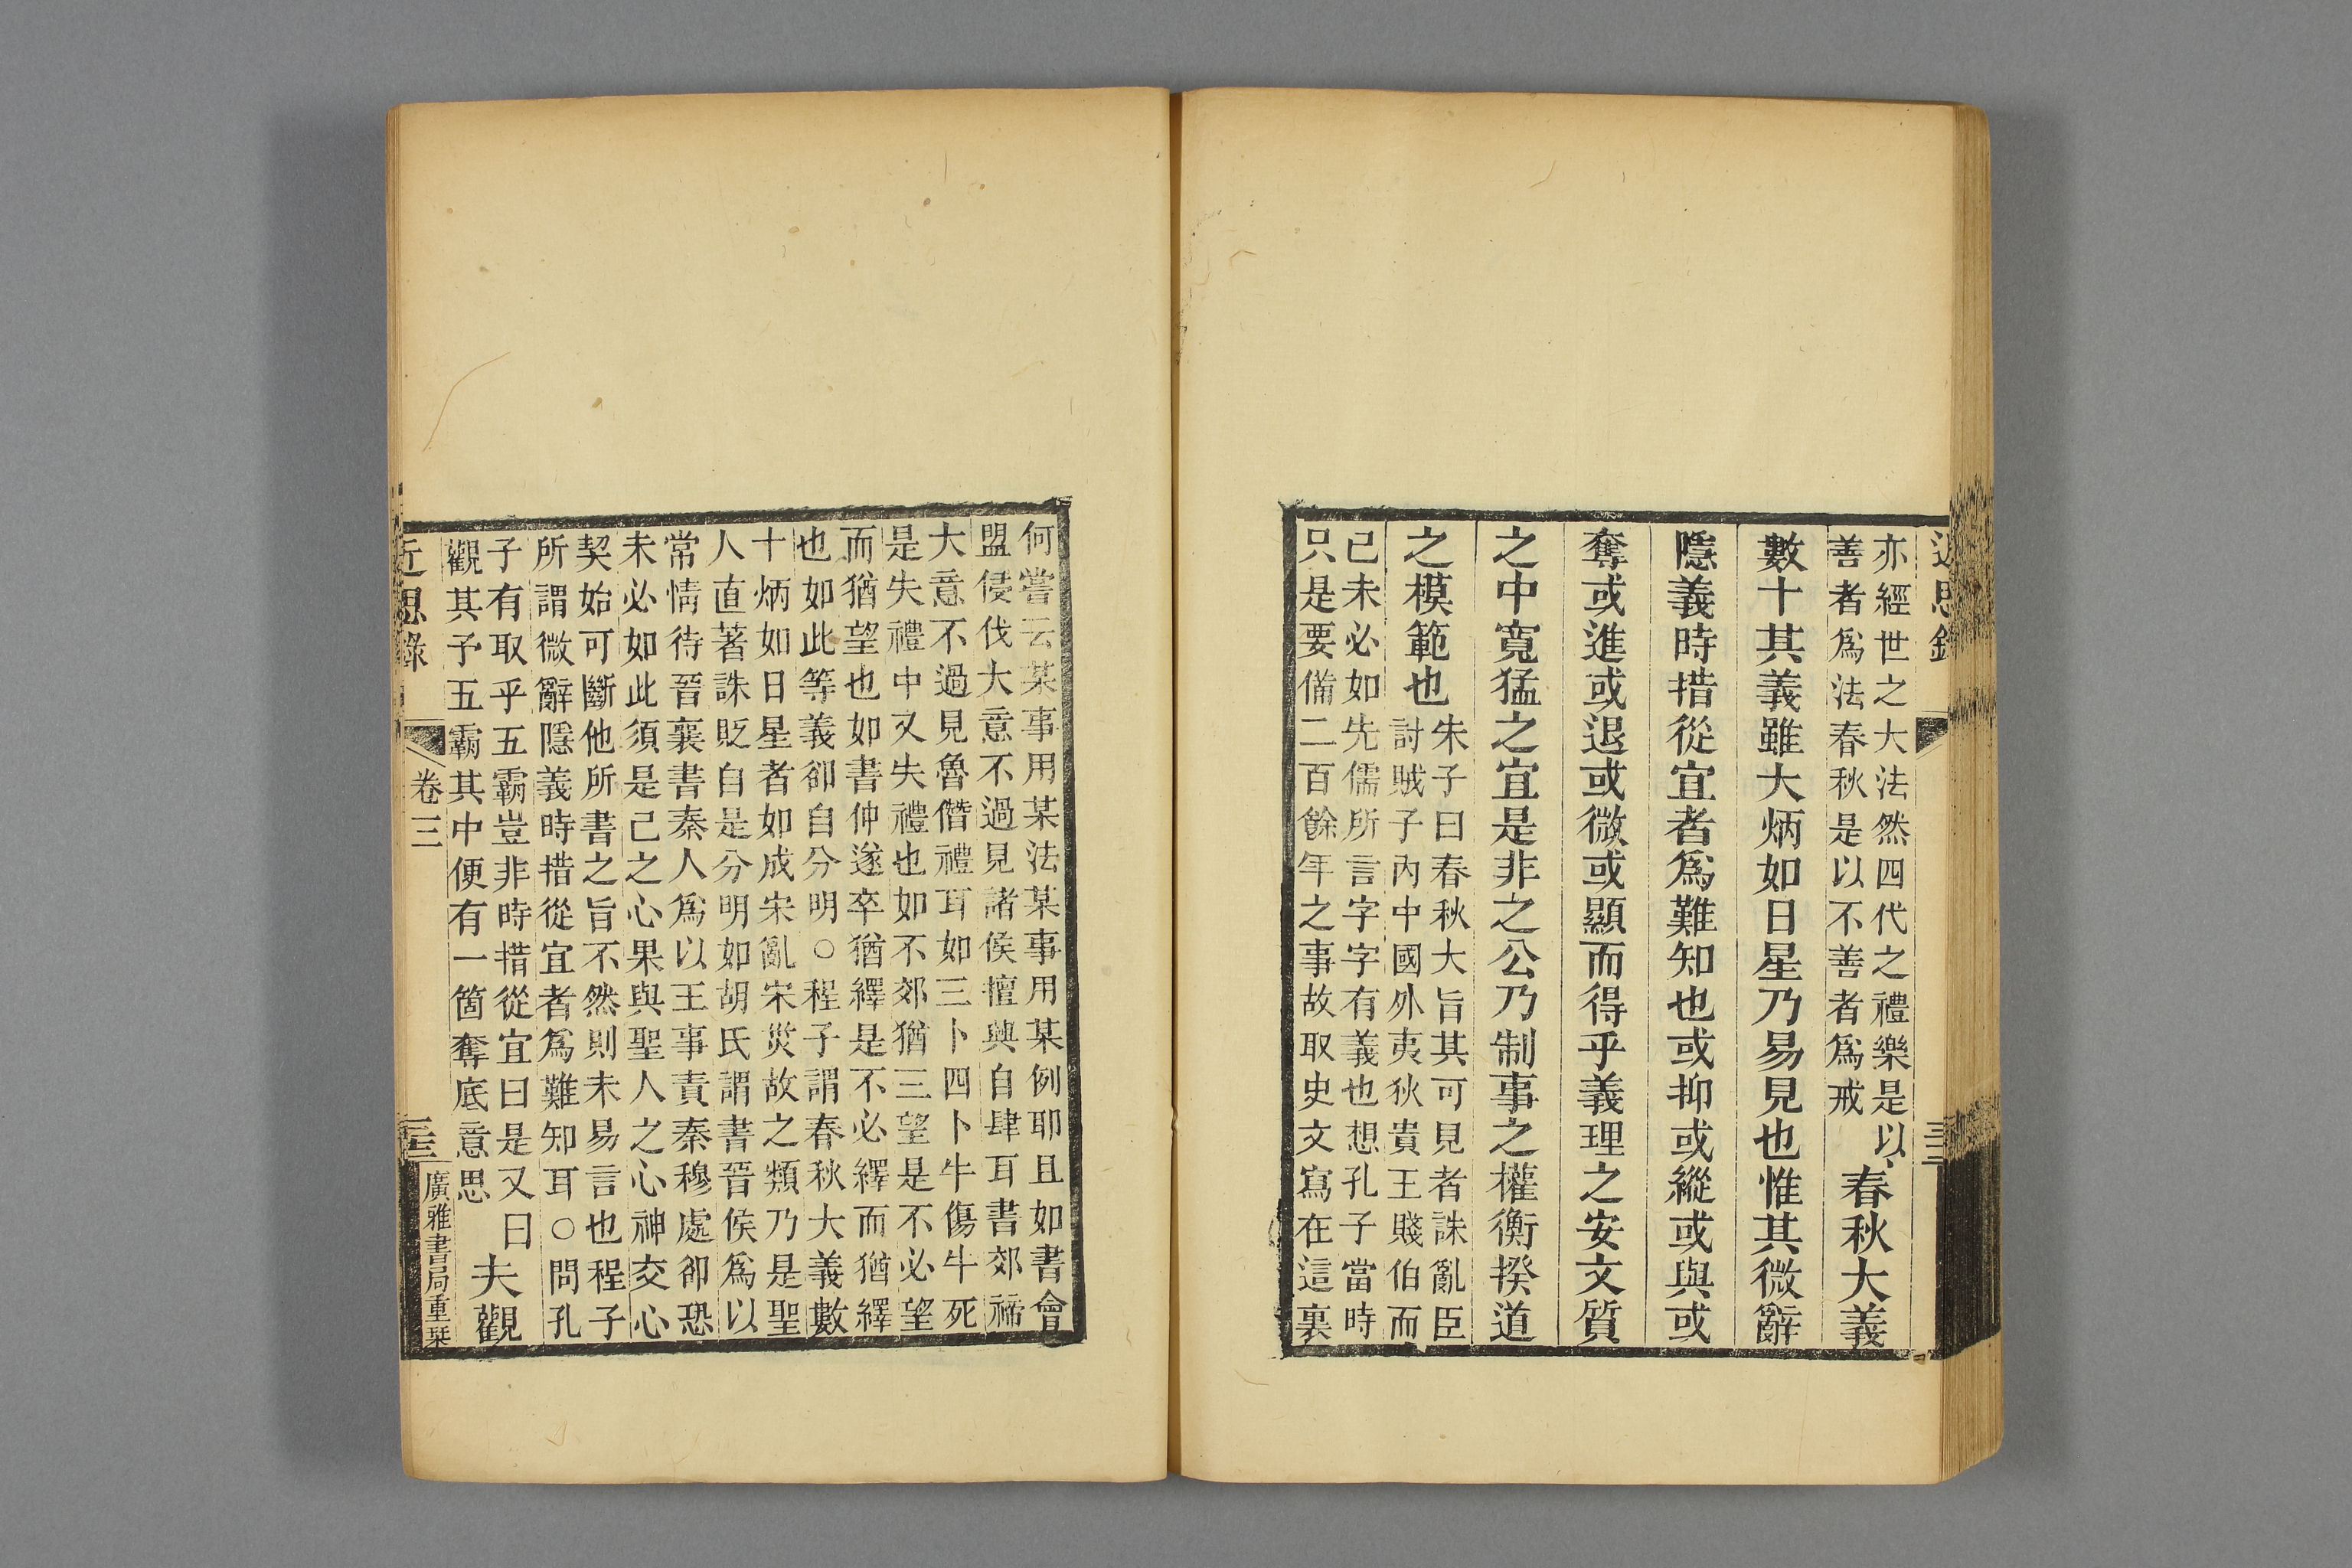 亦經世之大法然四代之禮樂是以
善者爲法春秋是以不善者爲戒
春秋大義
數十其義雖大炳如日星乃易見也惟其微辭
隱義時措從宜者爲難知也或抑或縱或與或
奪或進或退或微或顯而得乎義理之安文質
之中寬猛之宜是非之公乃制事之權衡揆道
之模範也
朱子曰春秋大旨其可見者誅亂臣
討賊子內中國外夷狄貴王賤伯而
已未必如先儒所言字字有義也想孔子當時
只是要備二百餘年之事故取史文寫在這裏
何嘗云某事用某法某事用某例耶且如書會
盟侵伐大意不過見諸侯擅興自肆耳書郊禘
大意不過見魯僭禮耳如三卜四卜牛傷牛死
是失禮中又失禮也如不郊猶三望是不必望
而猶望也如書仲遂卒猶繹是不必繹而猶繹
也如此等義卻自分明○程子謂春秋大義數
十炳如日星者如成宋亂宋災故之類乃是聖
人直著誅貶自是分明如胡氏謂書晉侯爲以
常情待晉襄書秦人爲以王事責秦穆處卻恐
未必如此須是己之心果與聖人之心神交心
契始可斷他所書之旨不然則未易言也程子
所謂微辭隱義時措從宜者爲難知耳○問孔
子有取乎五霸豈非時措從宜曰是又曰
觀其予五霸其中便有一箇奪底意思
夫觀
近思錄
卷三
廣雅書局重栞